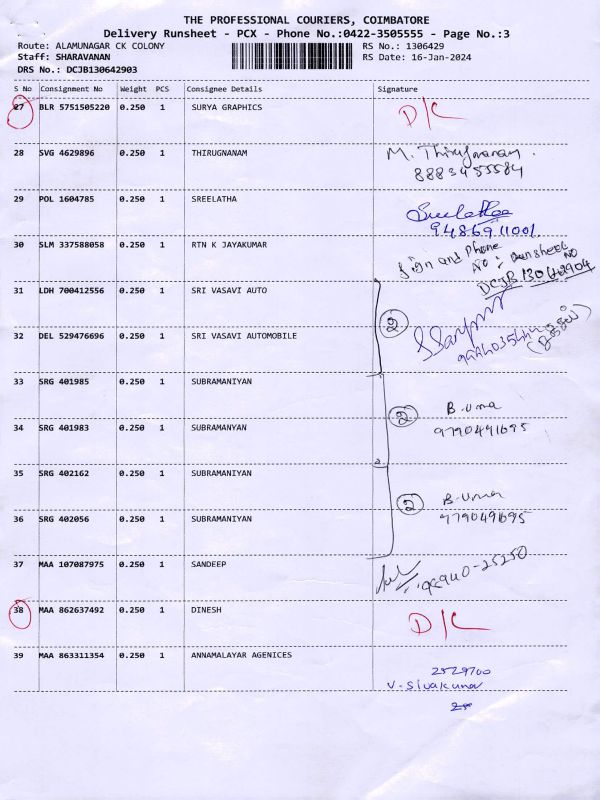 THE PROFESSIONAL COURIERS, COIMBATORE
Delivery Runsheet - PCX - Phone No.:0422-3505555 - Page No.:3
Route: ALAMUNAGAR CK COLONY RS No.: 1306429
Staff: SHARAVANAN RS Date: 16-Jan-2024
DRS No.: DCJB130642903
S No Consignment No Weight PCS Consignee Details Signature
27 BLR 5751505220 0.250 1 SURYA GRAPHICS D/C
28 SVG 4629896 0.250 1 THIRUGNANAM M. Thirugnanam.
8883455584
29 POL 1604785 0.250 1 SREELATHA Sreelatha
9486911001
30 SLM 337588058 0.250 1 RTN K JAYAKUMAR Sign and Phone
No: Runsheet No
DCJB130642904
31 LDH 700412556 0.250 1 SRI VASAVI AUTO
2
32 DEL 529476696 0.250 1 SRI VASAVI AUTOMOBILE
33 SRG 401985 0.250 1 SUBRAMANIYAN
2 B.Uma
34 SRG 401983 0.250 1 SUBRAMANYAN 9790491695
35 SRG 402162 0.250 1 SUBRAMANIYAN
2 B.Uma
36 SRG 402056 0.250 1 SUBRAMANIYAN 9790491695
37 MAA 107087975 0.250 1 SANDEEP 98940-25250
38 MAA 862637492 0.250 1 DINESH D/C
39 MAA 863311354 0.250 1 ANNAMALAYAR AGENICES
2529700
V-Sivakumar